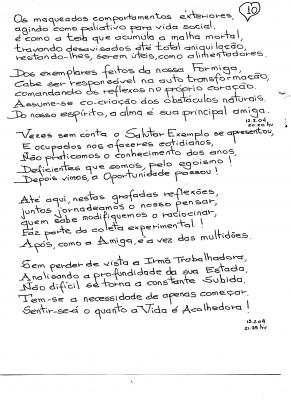 10
Os maqueados comportamentos exteriores,
agindo como paliativo para vida social,
é como a teia que acumula a malha mortal,
travando desavisados até total aniquilação,
restando-lhes, serem úteis, como alimentadores.
Dos exemplares feitos da nossa Formiga,
Cabe ser responsável na auto transformação,
comandando os reflexos no próprio coração.
Assume-se co-criação dos obstáculos naturais.
Do nosso espírito, a alma é sua principal amiga.
Vezes sem conta o Salutar Exemplo se apresentou,
E ocupados nos afazeres cotidianos,
Não praticamos o conhecimento dos anos,
Deficientes que somos, pelo egoísmo!
Depois vimos, a Oportunidade passou!
Até aqui, nestas grafadas reflexões,
juntos jornadeamos o nosso pensar,
quem sabe modifiquemos o raciocinar,
Faz parte da coleta experimental!
Após, como a Amiga, é a vez das multidões.
Sem perder de vista a Irmã Trabalhadora,
Analisando a profundidade da sua Estada,
Não difícil se torna a constante Subida.
Tem-se a necessidade de apenas começar.
Sentir-se-á o quanto a Vida é Acolhedora!